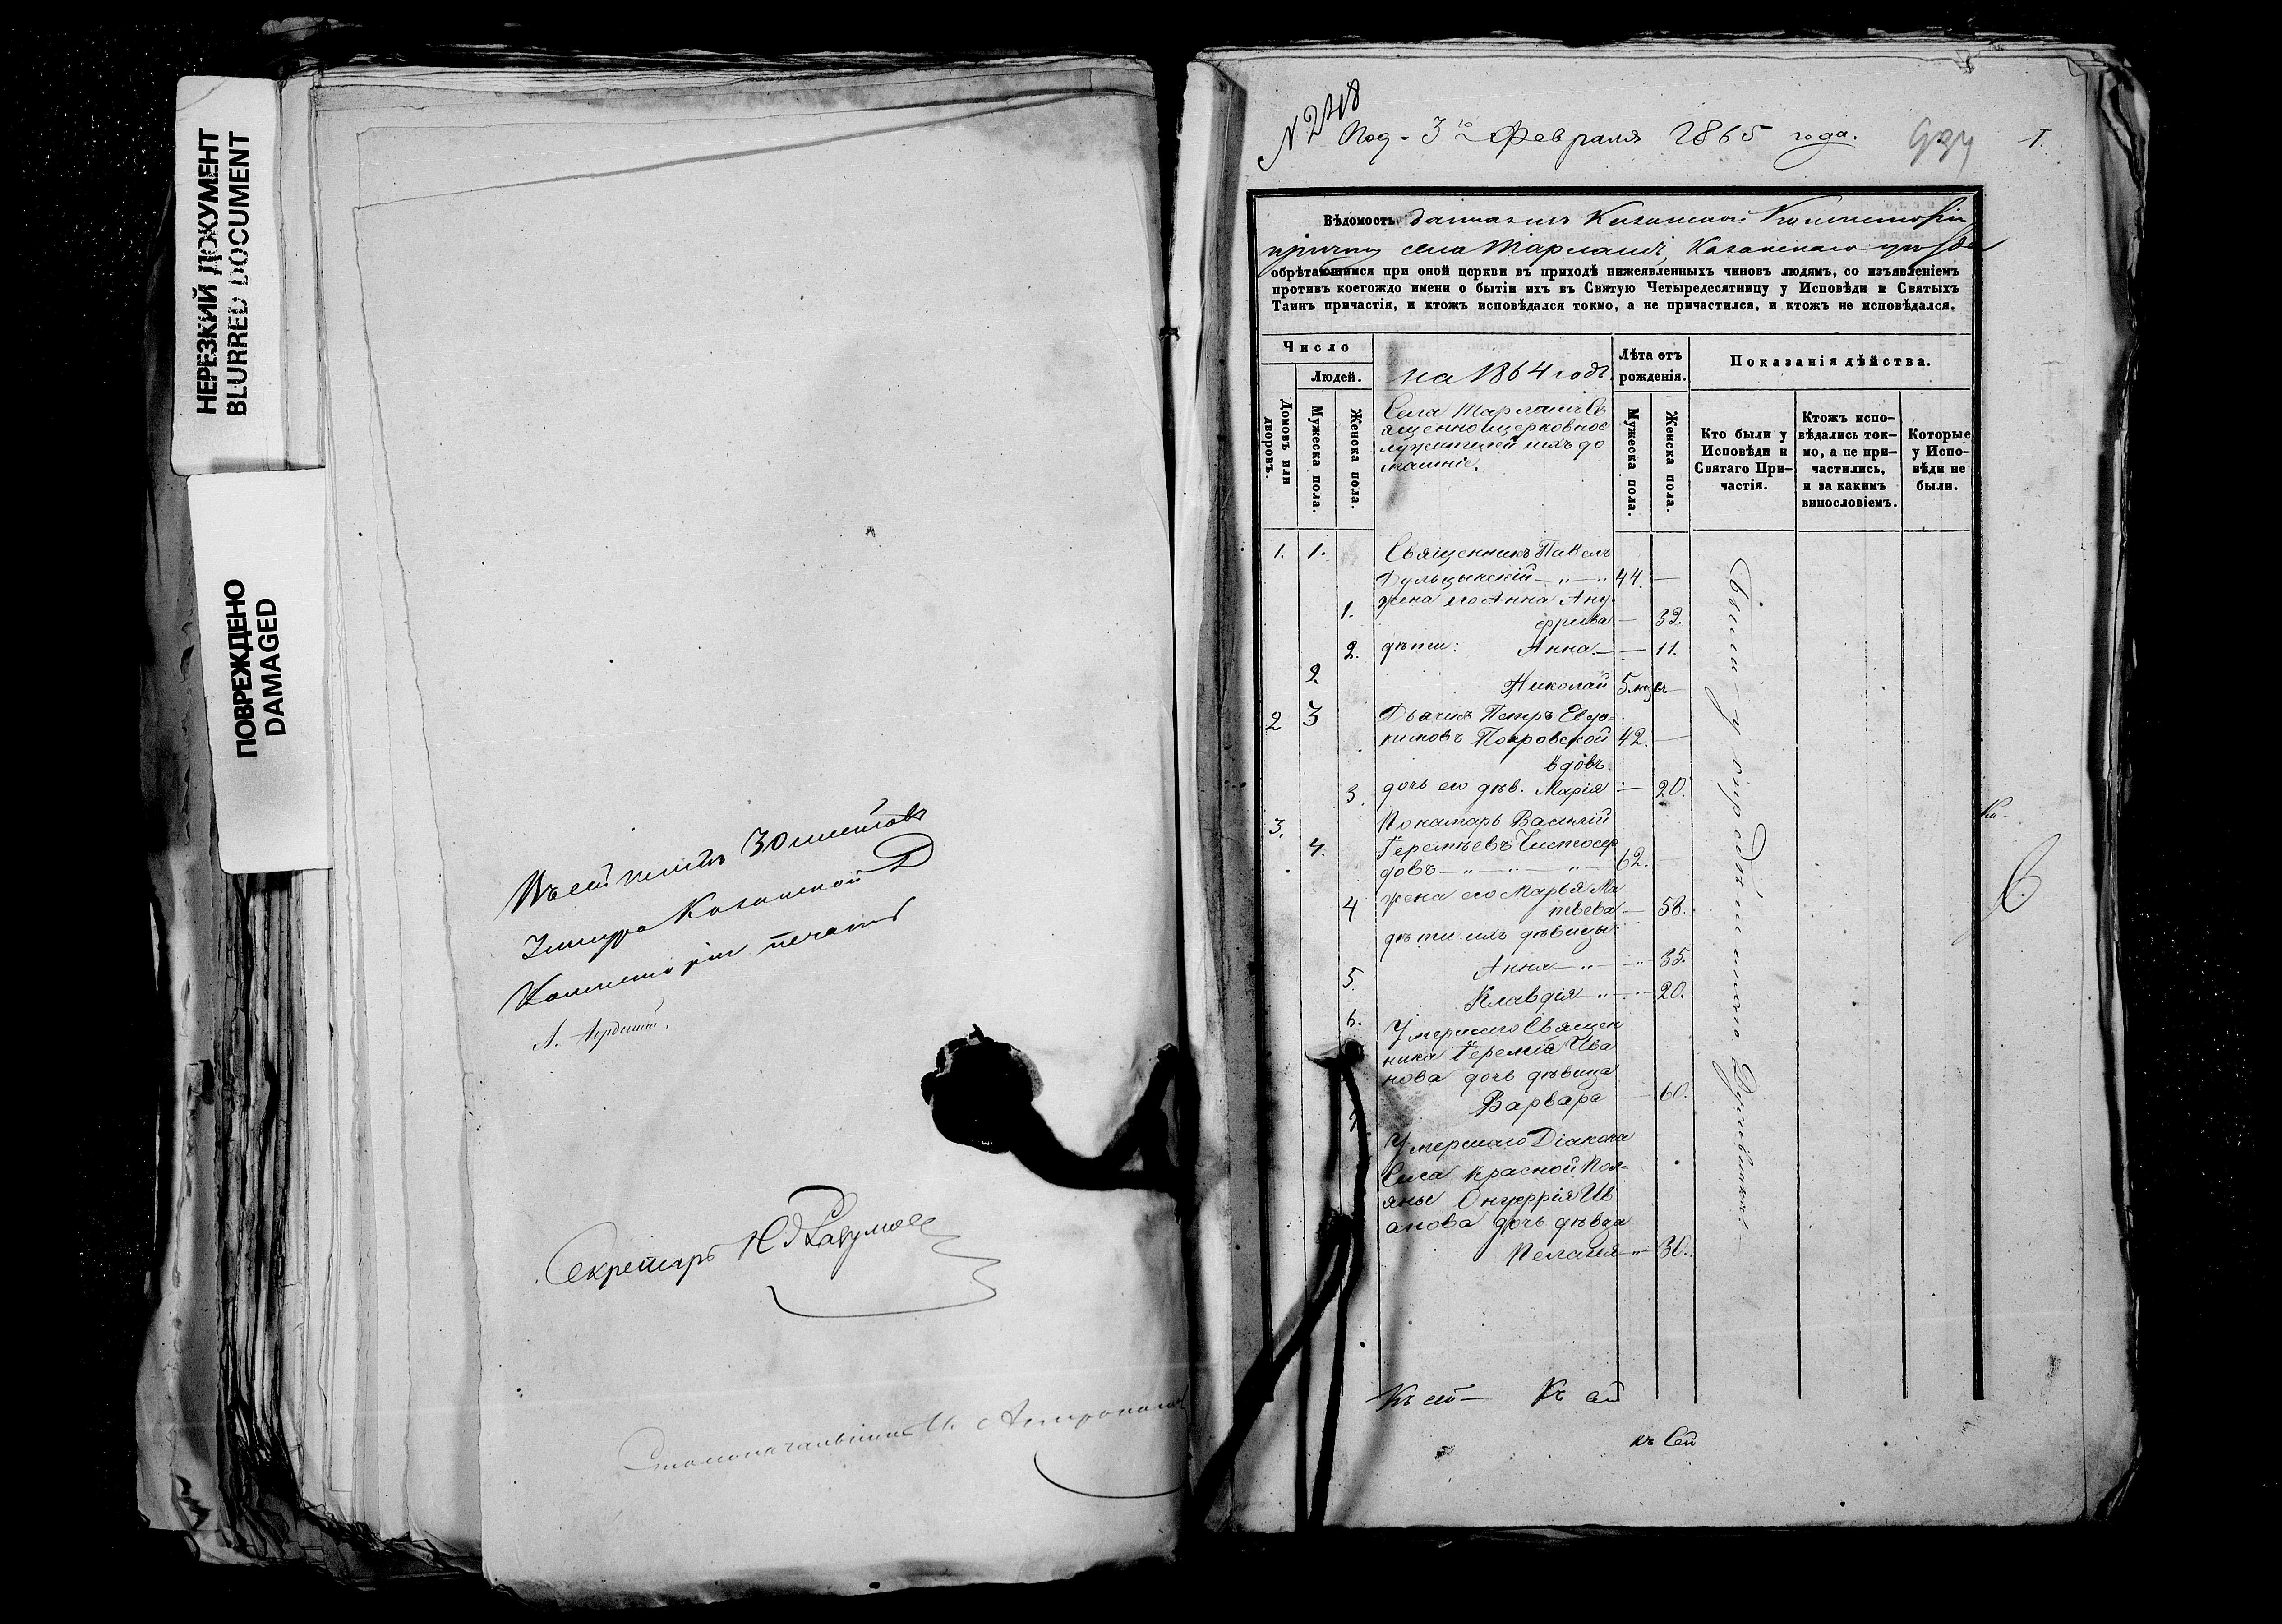 НЕРЕЗКИЙ ДОКУМЕНТ
BLURRED DOCUMENT
ПОВРЕЖДЕНО
DAMAGED
30 листовъ
Казанской Д
Консисторіи печать
Секретарь
Столоначальникъ
N 248
Под. 3го Февраля 1865 года.
1.
Вѣдомость данная изъ Казанской Консисторіи
причту села Тарлаши, Казанскаго уѣзда
обрѣтающимся при оной церкви въ приходѣ нижеявленныхъ чиновъ людямъ, со изъявленіемъ
противъ коегождо имени о бытіи ихъ въ Святую Четыредесятницу у Исповѣди и Святыхъ
Таинъ причастія, и ктожъ исповѣдался токмо, а не причастился, и ктожъ не исповѣдался.
Число
Людей.
Домовъ или дворовъ.
Мужеска пола.
Женска пола.
на 1864 годъ.
Села Тарлаши Св
ященно и церковнос
лужители и ихъ до
машніе.
Лѣта отъ
рожденія.
Мужеска пола.
Женска пола.
Показанія дѣйства.
Кто были у
Исповѣди и
Святаго При-
частія.
Ктожъ испо-
вѣдались ток-
мо, а не при-
частились,
и за какимъ
винословіемъ.
Которые
у Испо-
вѣди не
были.
1. 1. Священникъ Павелъ
Дульцынскій 44. —
1. жена его Анна Ану
фріева — 33.
2. дѣти: Анна — 11.
2. Николай 5 мѣс. —
2 3 Дьячекъ Петръ Евдо-
кимовъ Покровской 42. —
вдовъ.
3. дочь его дѣв. Марія — 20.
3. Пономарь Василій
4. Геремѣевъ Чистосер
довъ 62.
4 жена его Марья Ма
твеева — 58.
дѣти ихъ дѣвицы:
5. Анна — 35.
Клавдія — 20.
6. Умершаго Священ
ника Іереміа Ива
нова дочь дѣвица
7. Варвара — 60.
Умершаго Діакона
Села Красной Пол-
яны Онуфрія Ив
анова дочь дѣвца
Пелагія — 30.
Были
Къ сей Къ сей
къ Сей